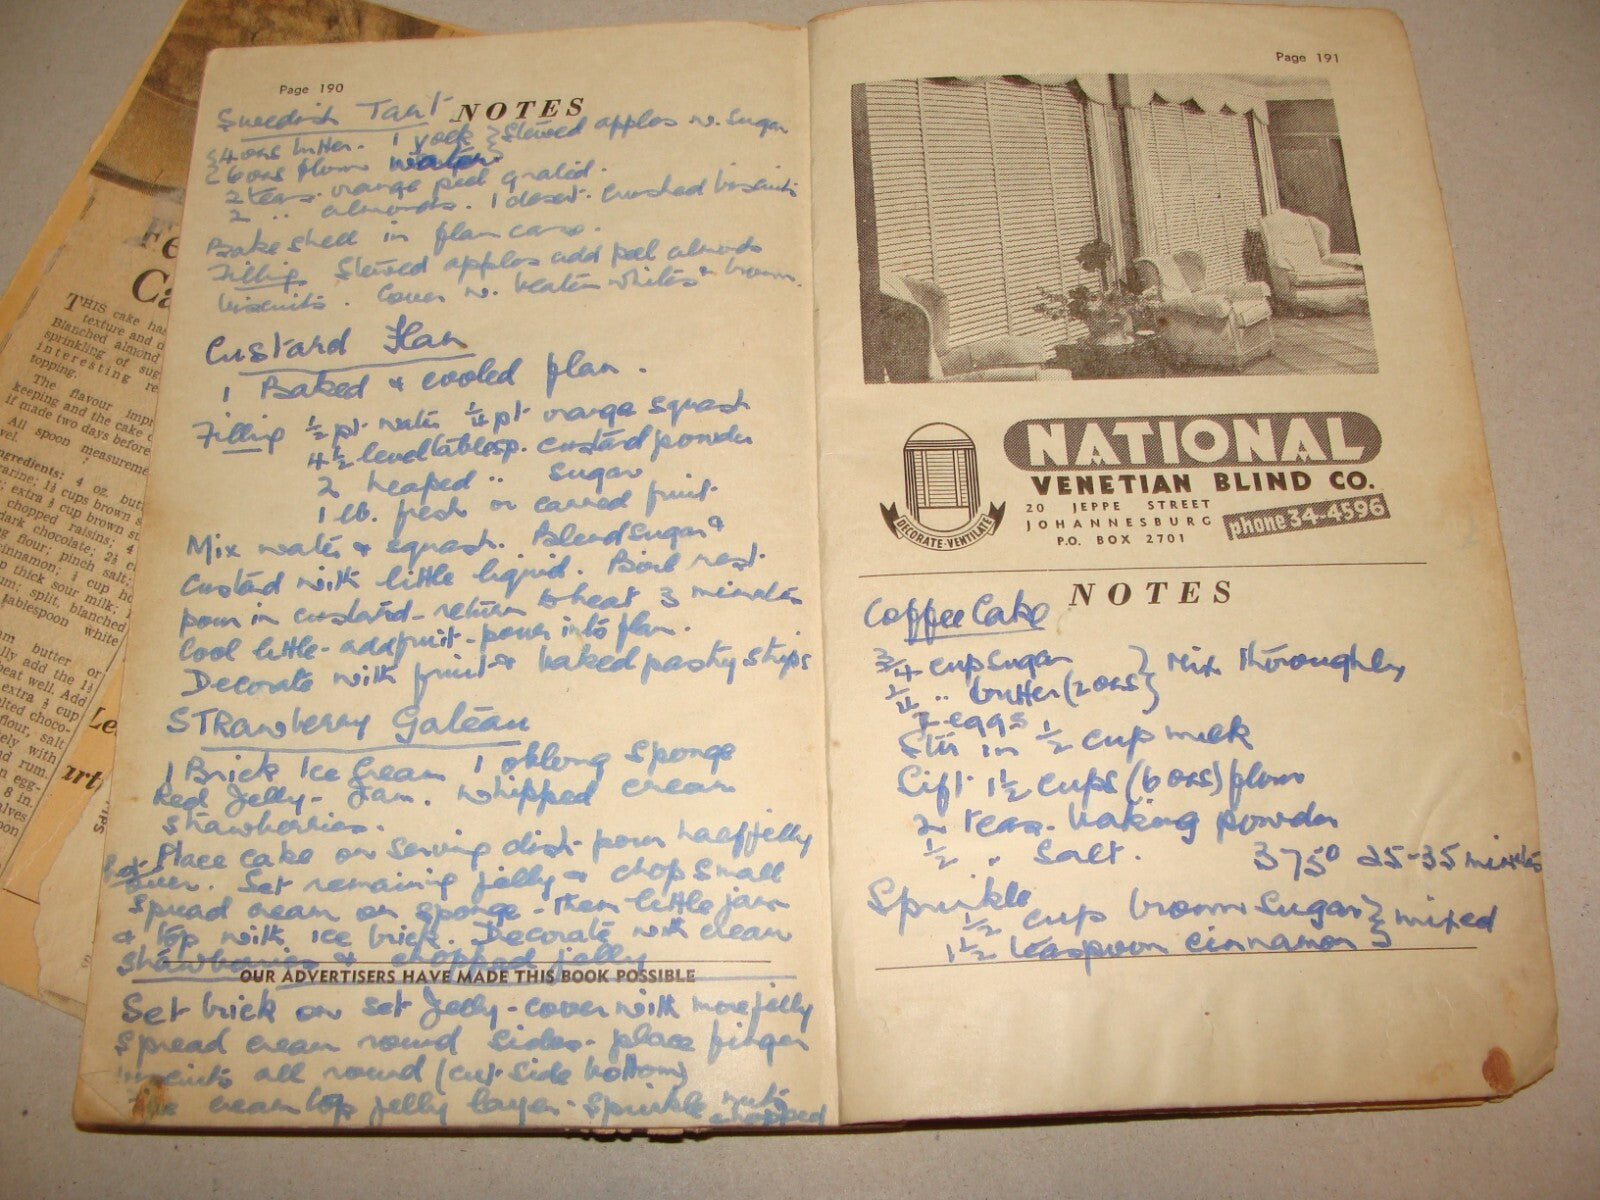 Page 190
NOTES
Swedish Tart
4 ozs butter. 1 yoek } Stewed apples w. sugar
6 ozs flour water
2 teas. orange peel grated.
2 " almonds. 1 desert. crushed biscuits
Bake shell in flan case.
Filling Stewed apples add peel almonds
biscuits. Cover w. beaten whites & brown.
Custard Flan
1 Baked & cooled flan.
Filling ½ pt. water ¼ pt. orange squash
4½ level tablesp. custard powder
2 heaped " sugar
1 lb. fresh or canned fruit.
Mix water & squash. Blend sugar &
custard with little liquid. Boil rest.
pour in custard - return to heat 3 minutes
Cool little - add fruit - pour into flan.
Decorate with fruit & baked pastry strips
STRawberry Gateau
1 Brick Ice Cream 1 oblong sponge
Red Jelly - Jam. whipped cream
strawberries.
Place cake on serving dish - pour half jelly
over. Set remaining jelly & chop small
Spread cream on sponge - then little jam
& top with ice brick. Decorate with cream
strawberries & chopped jelly
OUR ADVERTISERS HAVE MADE THIS BOOK POSSIBLE
Set brick on set Jelly - cover with more jelly
Spread cream round sides - place finger
biscuits all round (cut side bottom)
cream top jelly layer - sprinkle nuts
chopped
Page 191
NATIONAL
VENETIAN BLIND CO.
20 JEPPE STREET
JOHANNESBURG
P.O. BOX 2701
phone 34-4596
DECORATE-VENTILATE
NOTES
Coffee Cake
¾ cup sugar } Mix thoroughly
¼ " butter (2 ozs)
2 eggs
Stir in ½ cup milk
Sift 1½ cups (6 ozs) flour
2 teas. baking powder
½ " Salt. 375° 25-35 minutes
Sprinkle
½ cup brown sugar } mixed
1½ teaspoon cinnamon
Fe
Ca
THIS cake ha
texture and
Blanched almond
sprinkling of sug
interesting re
topping.
The flavour impr
keeping and the cake
if made two days before
All spoon measureme
ngredients: 4 oz. butt
arine; 1½ cups brown s
; extra ½ cup brown su
chopped raisins; 4
dark chocolate; 2½ c
ng flour; pinch salt;
cinnamon; ¼ cup ho
p thick sour milk;
um; split, blanched
tablespoon white
am butter or
lly add the 1½
beat well. Add
extra ½ cup
elted choco-
flour, salt
ely with
nd rum.
n egg-
8 in.
alves
oon